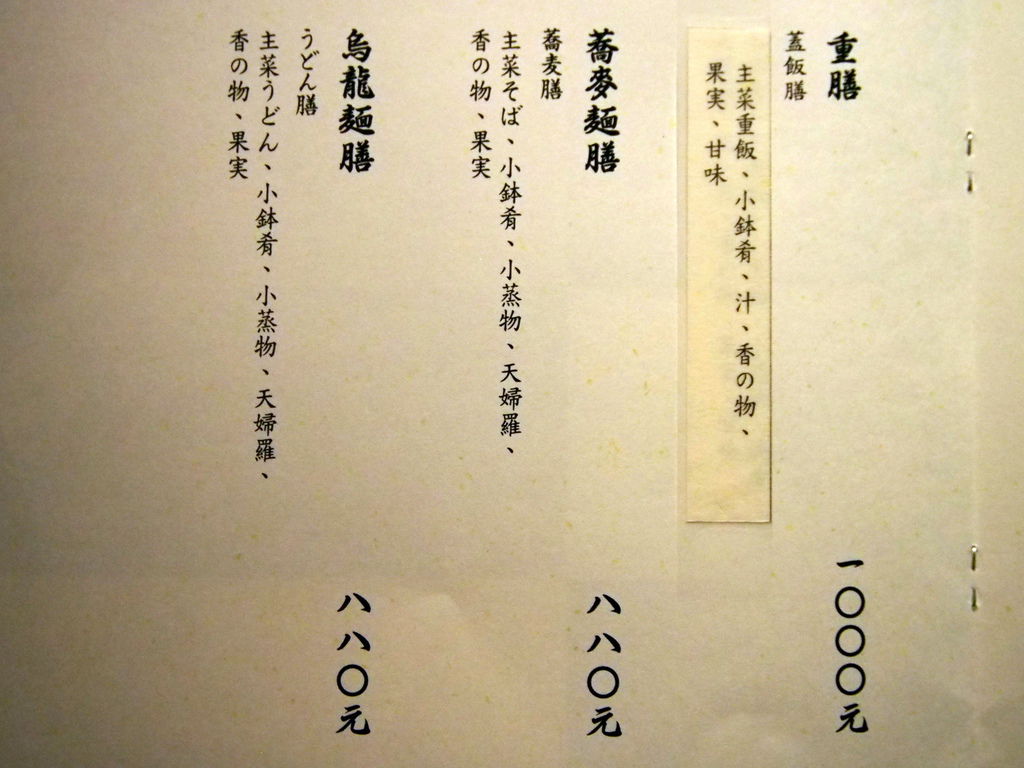 重膳
蓋飯膳
主菜重飯、小鉢肴、汁、香の物、
果実、甘味
一〇〇〇元
蕎麥麵膳
蕎麦膳
主菜そば、小鉢肴、小蒸物、天婦羅、
香の物、果実
八八〇元
烏龍麵膳
うどん膳
主菜うどん、小鉢肴、小蒸物、天婦羅、
香の物、果実
八八〇元